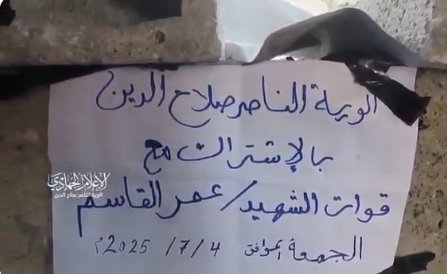 الوية الناصر صلاح الدين
بالإشتراك مع
قوات الشهيد/عمر القاسم
الجمعة الموافق 4/7/2025م
الإعلام الجهادي
ألوية الناصر صلاح الدين